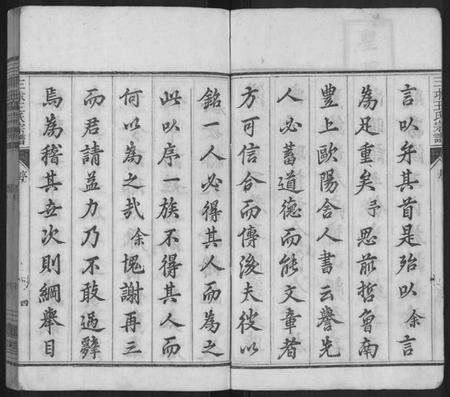 言以弁其首是殆以余言
為足重矣予思前哲曾南
豐上歐陽舍人書云譽先
人必蓄道德而能文章者
方可信今而傳後夫彼以
銘一人必得其人而為之
此以序一族不得其人而
何以為之哉余愧謝再三
而君請益力乃不敢過辭
焉為稽其世次則綱舉目
四